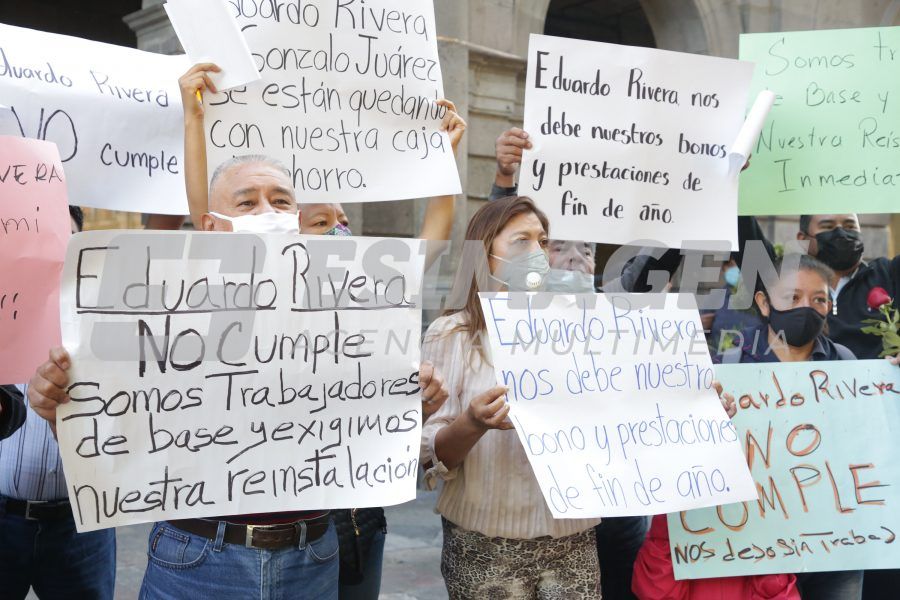 Eduardo Rivera
NO
cumple
Eduardo Rivera
Gonzalo Juárez
se están quedando
con nuestra caja
ahorro.
Eduardo Rivera nos
debe nuestros bonos
y prestaciones de
fin de año.
Somos
de Base y
Nuestra
Inmediat
Eduardo Rivera
No Cumple
Somos Trabajadores
de base y exigimos
nuestra reinstalación
Eduardo Rivera
nos debe nuestra
bono y prestaciones
de fin de año.
Eduardo Rivera
NO
CUMPLE
Nos dejo sin Trabaj
ESIMAGEN
AGENCIA MULTIMEDIA